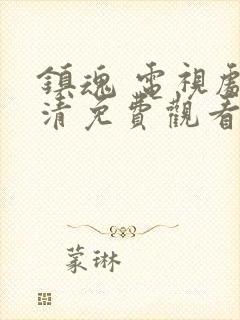 鎮魂 電視
清免費觀看
蒙琳